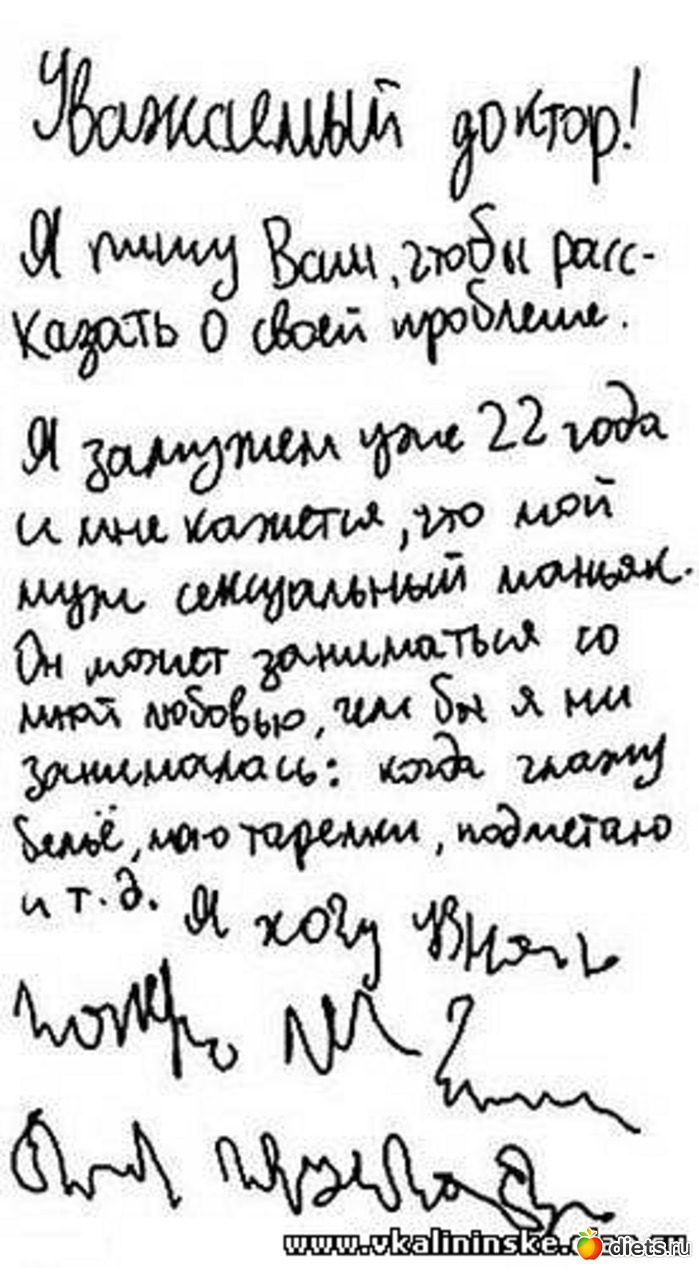 Уважаемый доктор!
Я пишу Вам, чтобы расс-
казать о своей проблеме.
Я замужем уже 22 года
и мне кажется, что мой
муж сексуальный маньяк.
Он может заниматься со
мной любовью, чем бы я ни
занималась: когда глажу
бельё, мою тарелки, подметаю
и т.д. Я хочу узнать
www.vkalininske.
diets.ru